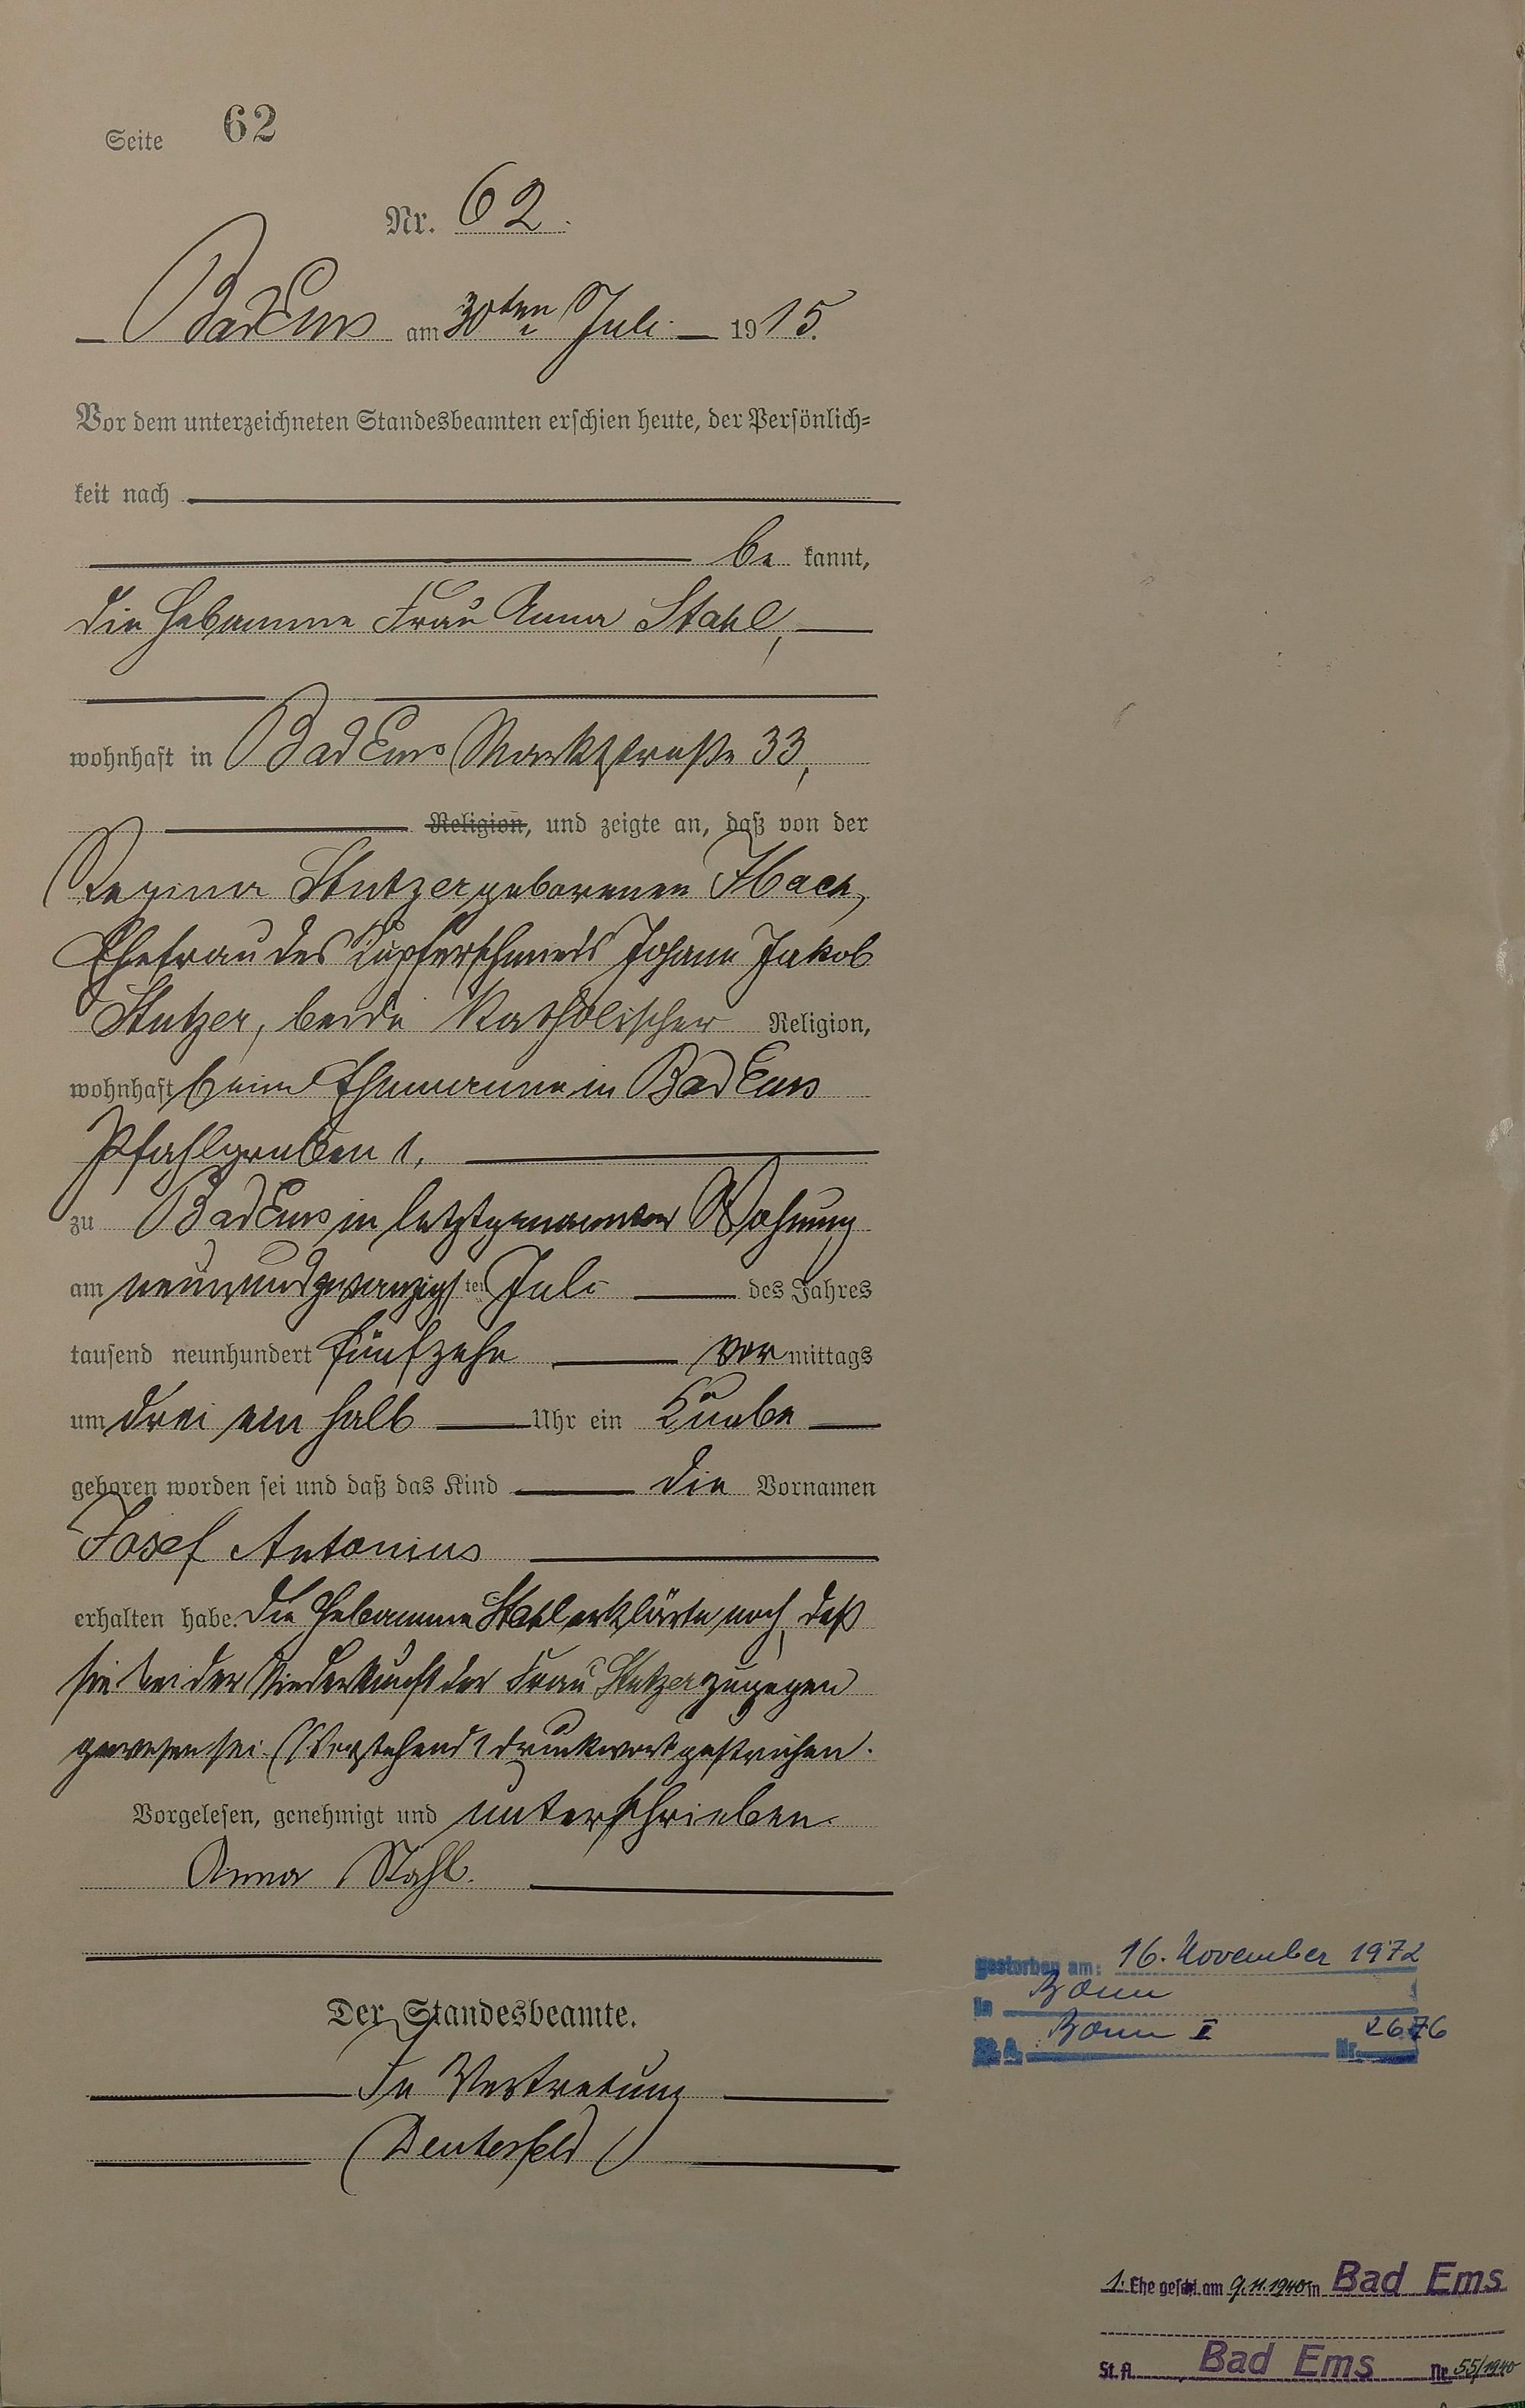 Seite 62
Nr. 62.
Bad Ems am 30ten Juli 1915.
Vor dem unterzeichneten Standesbeamten erschien heute, der Persönlich=
keit nach
be kannt,
die Hebamme Frau Anna Stahl,
wohnhaft in Bad Ems Marktstraße 33,
Religion, und zeigte an, daß von der
Regina Stutzer geborenen Ibach,
Ehefrau des Kupferschmieds Johann Jakob
Stutzer, beide katholischer Religion,
wohnhaft beim Ehemanne in Bad Ems
Pfahlgraben 1,
zu Bad Ems in letztgenannter Wohnung
am neunundzwanzigsten Juli des Jahres
tausend neunhundert fünfzehn vormittags
um drei ein halb Uhr ein Knabe
geboren worden sei und daß das Kind die Vornamen
Josef Antonius
erhalten habe. Die Hebamme Stahl erklärte noch, daß
sie bei der Niederkunft der Frau Stutzer zugegen
gewesen sei. Vorstehend 1 Druckwort gestrichen.
Vorgelesen, genehmigt und unterschrieben.
Anna Stahl.
Der Standesbeamte.
In Vertretung
gestorben am: 16. November 1972
in Bonn
St. A. Bonn I Nr. 2676
1. Ehe geschl. am 9.11.1940 in Bad Ems
St. A. Bad Ems Nr. 55/1940